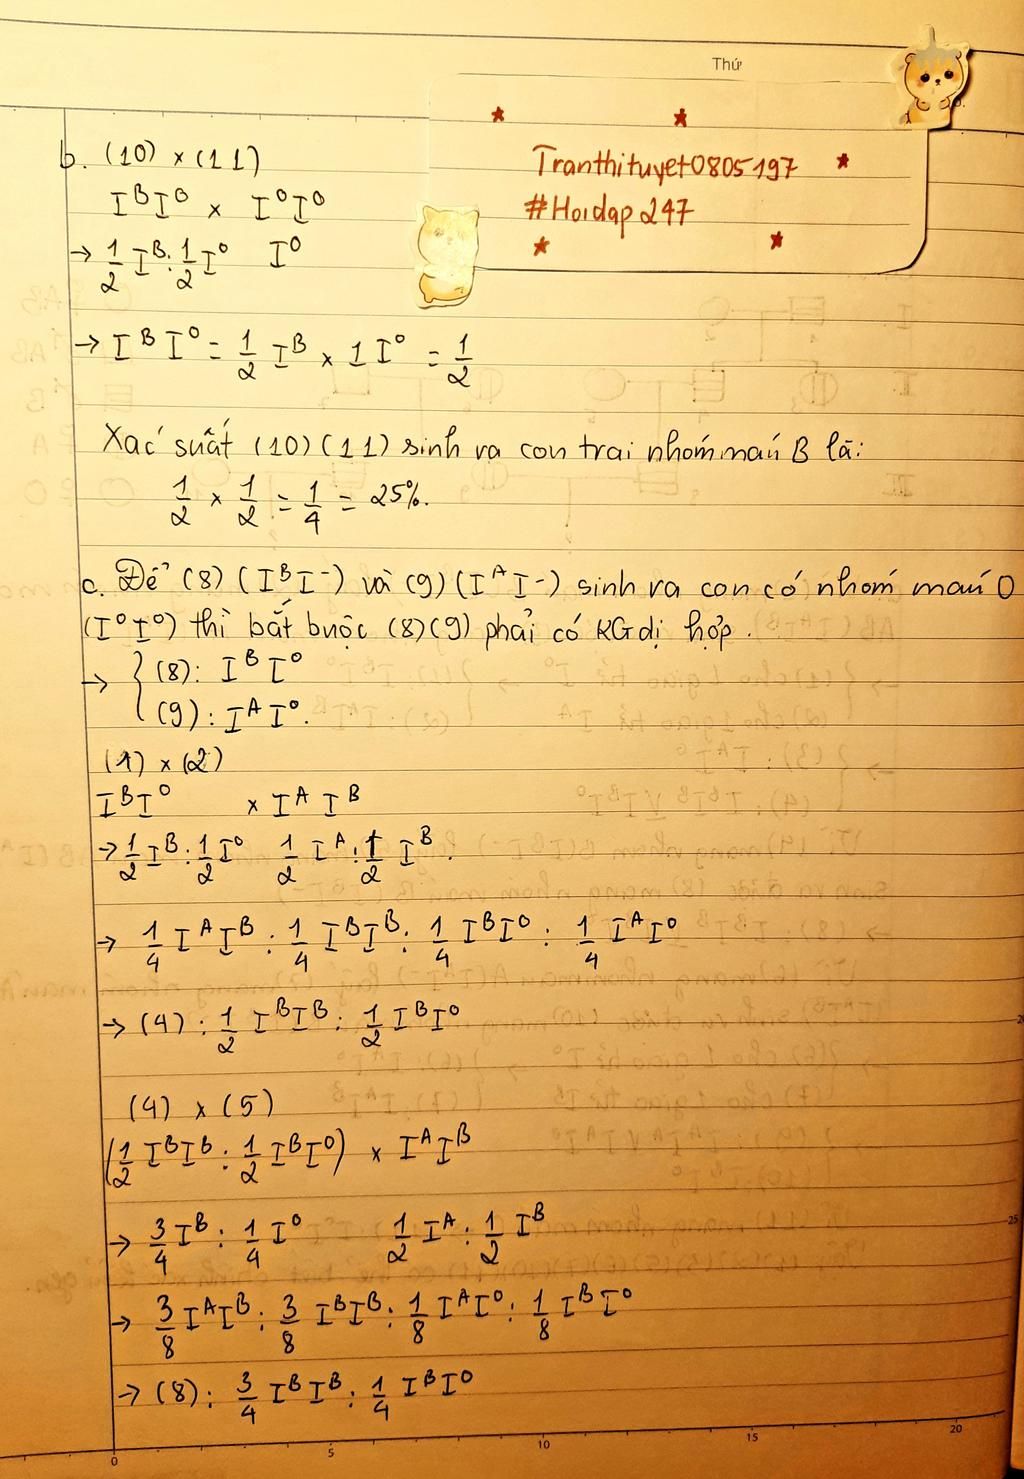 Thứ
Tranthituyet0805197
#Hoidap247
b. (10) × (11)
IᴮIᴼ × IᴼIᴼ
→ 1/2 Iᴮ : 1/2 Iᴼ Iᴼ
→ IᴮIᴼ = 1/2 Iᴮ × 1 Iᴼ = 1/2
Xác suất (10)(11) sinh ra con trai nhóm máu B là:
1/2 × 1/2 = 1/4 = 25%.
c. Để (8) (IᴮI⁻) và (9) (IᴬI⁻) sinh ra con có nhóm máu O
(IᴼIᴼ) thì bắt buộc (8)(9) phải có KG dị hợp.
→ { (8): IᴮIᴼ
(9): IᴬIᴼ.
(1) × (2)
IᴮIᴼ × IᴬIᴮ
→ 1/2 Iᴮ : 1/2 Iᴼ 1/2 Iᴬ : 1/2 Iᴮ.
→ 1/4 IᴬIᴮ : 1/4 IᴮIᴮ : 1/4 IᴮIᴼ : 1/4 IᴬIᴼ
→ (4) : 1/2 IᴮIᴮ : 1/2 IᴮIᴼ
(4) × (5)
(1/2 IᴮIᴮ : 1/2 IᴮIᴼ) × IᴬIᴮ
→ 3/4 Iᴮ : 1/4 Iᴼ 1/2 Iᴬ : 1/2 Iᴮ
→ 3/8 IᴬIᴮ : 3/8 IᴮIᴮ : 1/8 IᴬIᴼ : 1/8 IᴮIᴼ
→ (8) : 3/4 IᴮIᴮ : 1/4 IᴮIᴼ
0 5 10 15 20